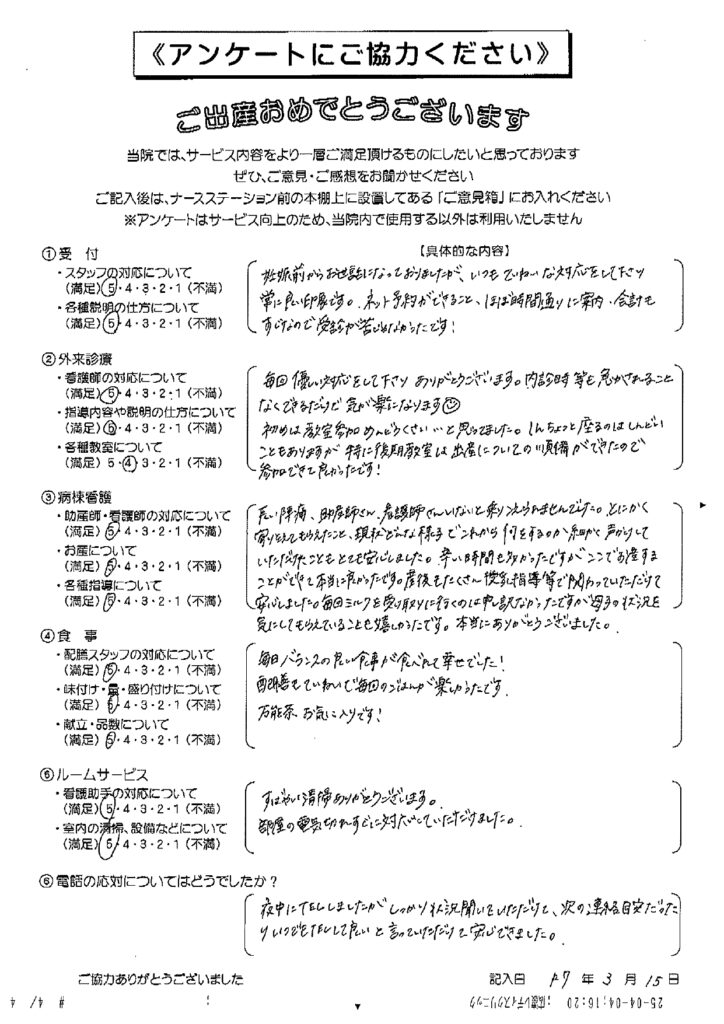 《アンケートにご協力ください》
ご出産おめでとうございます
当院では、サービス内容をより一層ご満足頂けるものにしたいと思っております
ぜひ、ご意見・ご感想をお聞かせください
ご記入後は、ナースステーション前の本棚上に設置してある「ご意見箱」にお入れください
※アンケートはサービス向上のため、当院内で使用する以外は利用いたしません
①受 付
【具体的な内容】
・スタッフの対応について
(満足) 5・4・3・2・1 (不満)
・各種説明の仕方について
(満足) 5・4・3・2・1 (不満)
妊娠前からお世話になっておりましたが、いつもていねいな対応をして下さり
常に良い印象です。ネット予約ができること、ほぼ時間通りに案内・会計も
すぐなので受診が苦じゃなかったです!
②外来診療
・看護師の対応について
(満足) 5・4・3・2・1 (不満)
・指導内容や説明の仕方について
(満足) 5・4・3・2・1 (不満)
・各種教室について
(満足) 5・4・3・2・1 (不満)
毎回優しい対応をして下さりありがとうございます。内診時等を急かされること
なくできるだけで気が楽になります☺
初めは教室参加めんどうくさい…と思ってました。しんちょっと座るのはしんどい
こともありますが特に後期教室は出産についての準備ができたので
参加できて良かったです!
③病棟看護
・助産師・看護師の対応について
(満足) 5・4・3・2・1 (不満)
・お産について
(満足) 5・4・3・2・1 (不満)
・各種指導について
(満足) 5・4・3・2・1 (不満)
長い陣痛、助産師さん、看護師さんいないと乗りこえられませんでした。とにかく
寄りそえてもらえたこと、現在どんな様子でこれから何をするのか細かく声かけして
いただけたこともとても安心しました。辛い時間も多かったですがここでお産する
ことができて本当に良かったです。産後もたくさん授乳指導等で関わっていただけて
安心しました。毎回ミルクを受け取りに行くのは申し訳なかったですが母子の状況を
気にしてもらえていることも嬉しかったです。本当にありがとうございました。
④食 事
・配膳スタッフの対応について
(満足) 5・4・3・2・1 (不満)
・味付け・量・盛り付けについて
(満足) 5・4・3・2・1 (不満)
・献立・品数について
(満足) 5・4・3・2・1 (不満)
毎日バランスの良い食事が食べれて幸せでした!
配膳もていねいで毎回のごはんが楽しかったです。
万能茶お気に入りです!
⑤ルームサービス
・看護助手の対応について
(満足) 5・4・3・2・1 (不満)
・室内の清掃、設備などについて
(満足) 5・4・3・2・1 (不満)
すばやい清掃ありがとうございます。
部屋の電気切れすぐに対応していただけました。
⑥電話の応対についてはどうでしたか?
夜中にTELしましたがしっかり状況聞いていただけて、次の連絡目安だったり
いつでもTELして良いと言っていただけて安心できました。
ご協力ありがとうございました
記入日 R7 年 3 月 15 日
25-04-04;16:20
# 4/ 4